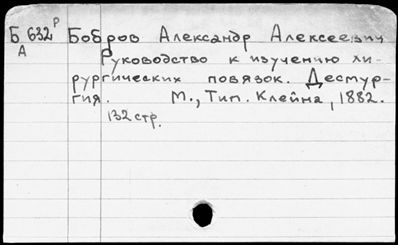 Б 632 Р Бобров Александр Алексеевич
А Руководство к изучению хи-
рургических повязок. Десмур-
гия. М., Тип. Клейна, 1882.
132 стр.